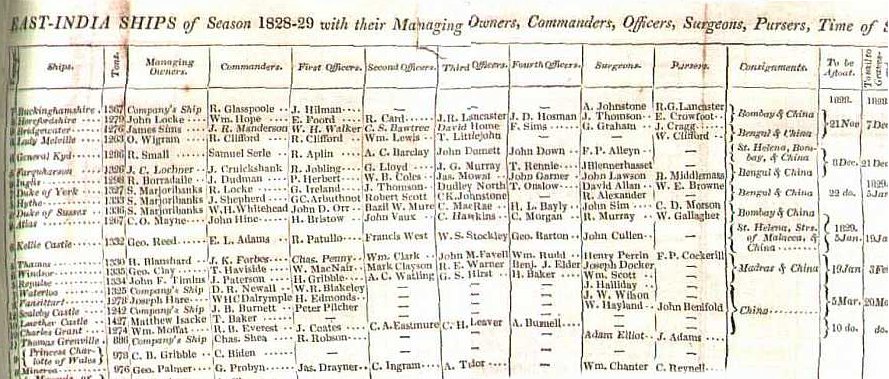 EAST-INDIA SHIPS of Season 1828-29 with their Managing Owners, Commanders, Officers, Surgeons, Pursers, Time of
Ships. Tons. Managing Owners. Commanders. First Officers. Second Officers. Third Officers. Fourth Officers. Surgeons. Pursers. Consignments. To be Afloat.
1828. 1828.
Buckinghamshire 1367 Company's Ship R. Glasspoole J. Hilman — — — A. Johnstone R.G. Lancaster
Herefordshire 1279 John Locke Wm. Hope E. Foord R. Card J.R. Lancaster J. D. Hosman J. Thomson E. Crowfoot Bombay & China
Bridgewater 1276 James Sims J. R. Manderson W. H. Walker C. S. Bawtree David Home F. Sims G. Graham J. Cragg 21 Nov 7 Dec
Lady Melville 1263 O. Wigram R. Clifford R. Clifford Wm. Lewis T. Littlejohn — — W. Cliffords Bengal & China
General Kyd 1286 R. Small Samuel Serle R. Aplin A. C. Barclay John Dumett John Down F. P. Alleyn — St. Helena, Bombay, & China
Farquharson J. C. Lochner J. Cruickshank R. Jobling G. Lloyd J. G. Murray T. Rennie J Blennerhasset — 8 Dec. 21 Dec
Inglis 1298 R. Borradaile J. Dudman P. Herbert W. R. Coles Jas. Mowat John Garner John Lawson R. Middlemass Bengal & China
Duke of York 1327 S. Marjoribanks R. Locke G. Ireland J. Thomson Dudley North T. Onslow David Allan W. E. Browne 1829.
Hythe 1333 S. Marjoribanks J. Shepherd G.C. Arbuthnot Robert Scott C K. Johnstone — R. Alexander — Bengal & China 22 do. 5 Jan
Duke of Sussex 1336 S. Marjoribanks W.H. Whitehead John D. Orr Bazil W. Mure C. MacRae H. L. Bayly John Sim C. D. Morson
Atlas 1267 C. O. Mayne John Hine H. Bristow John Vaux C. Hawkins C. Morgan R. Murray W. Gallagher Bombay & China
Kellie Castle 1332 Geo. Reed E. L. Adams R. Patullo Francis West W. S. Stockley Geo. Barton John Cullen — St. Helena, Strs. of Malacca, & China 1829. 5 Jan. 19 Jan
Thames 1330 R. Blanshard J. K. Forbes Chas. Penny Wm. Clark John M. Favell Wm. Rudd Henry Perrin F. P. Cockerill
Windsor 1335 Geo. Clay T. Haviside W. MacNair Mark Clayson R. E. Warner Benj. J. Elder Joseph Docker —
Repulse 1334 John F. Timins J. Paterson H. Gribble A. C. Watling G. S. Hirst H. Baker Wm. Scott — Madras & China 19 Jan 3 Feb
Waterloo 1325 Company's Ship D. R. Newall W. R. Blakeley — — — J. Halliday —
Vansittart 1273 Joseph Hare WHC Dalrymple H. Edmonds — — — J. W. Wilson —
Scaleby Castle 1242 Company's Ship J. B. Burnett Peter Pilcher — — — W. Hayland John Benifold 5 Mar. 20 Mar
Lowther Castle 1427 Matthew Isacke T. Baker — — — — — — China
Charles Grant 1274 Wm. Moffat R. B. Everest J. Coates C. A. Eastmure C. H. Leaver A. Burnell — — 10 do. do.
Thomas Grenville 886 Company's Ship Chas. Shea R. Robson — — — Adam Elliot J. Adams
Princess Charlotte of Wales 978 C. B. Gribble C. Biden — — — — — —
Minerva 976 Geo. Palmer G. Probyn Jas. Drayner C. Ingram A. Tudor — Wm. Chanter C. Reynell